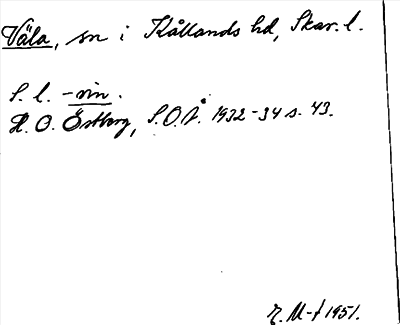 Väla, sn i Kållands hd, Skar. l.
S. l. -vin.
H. O. Östberg, S.O.Å. 1932-34 s. 43.
R. M-t 1951.